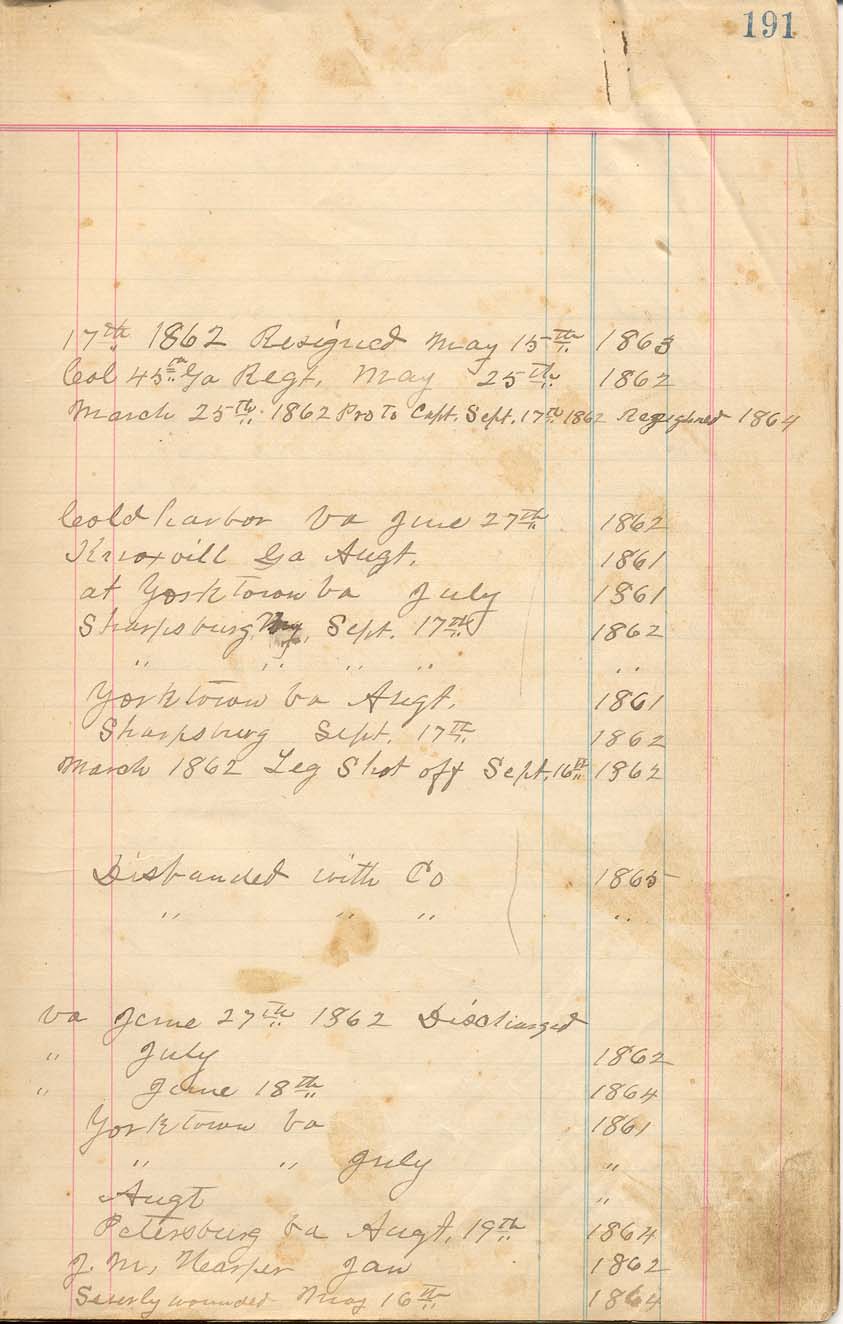 191
17th 1862 Resigned May 15th 1863
Col 45th Ga Regt. May 25th 1862
March 25th 1862 Pro To Capt. Sept. 17th 1862 Resighned 1864
Cold harbor Va June 27th 1862
Knoxvill Ga Augt. 1861
at Yorktown Va July 1861
Sharpsburg Sept. 17th 1862
" " " " "
Yorktown Va Augt. 1861
Sharpsburg Sept. 17th 1862
March 1862 Leg Shot off Sept. 16th 1862
Disbanded with Co 1865
" " " "
Va June 27th 1862 Discharged
" July 1862
" June 18th 1864
Yorktown Va 1861
" " July "
Augt "
Petersburg Va Augt. 19th 1864
J. M. Harper Jan 1862
Severly wounded May 16th 1864